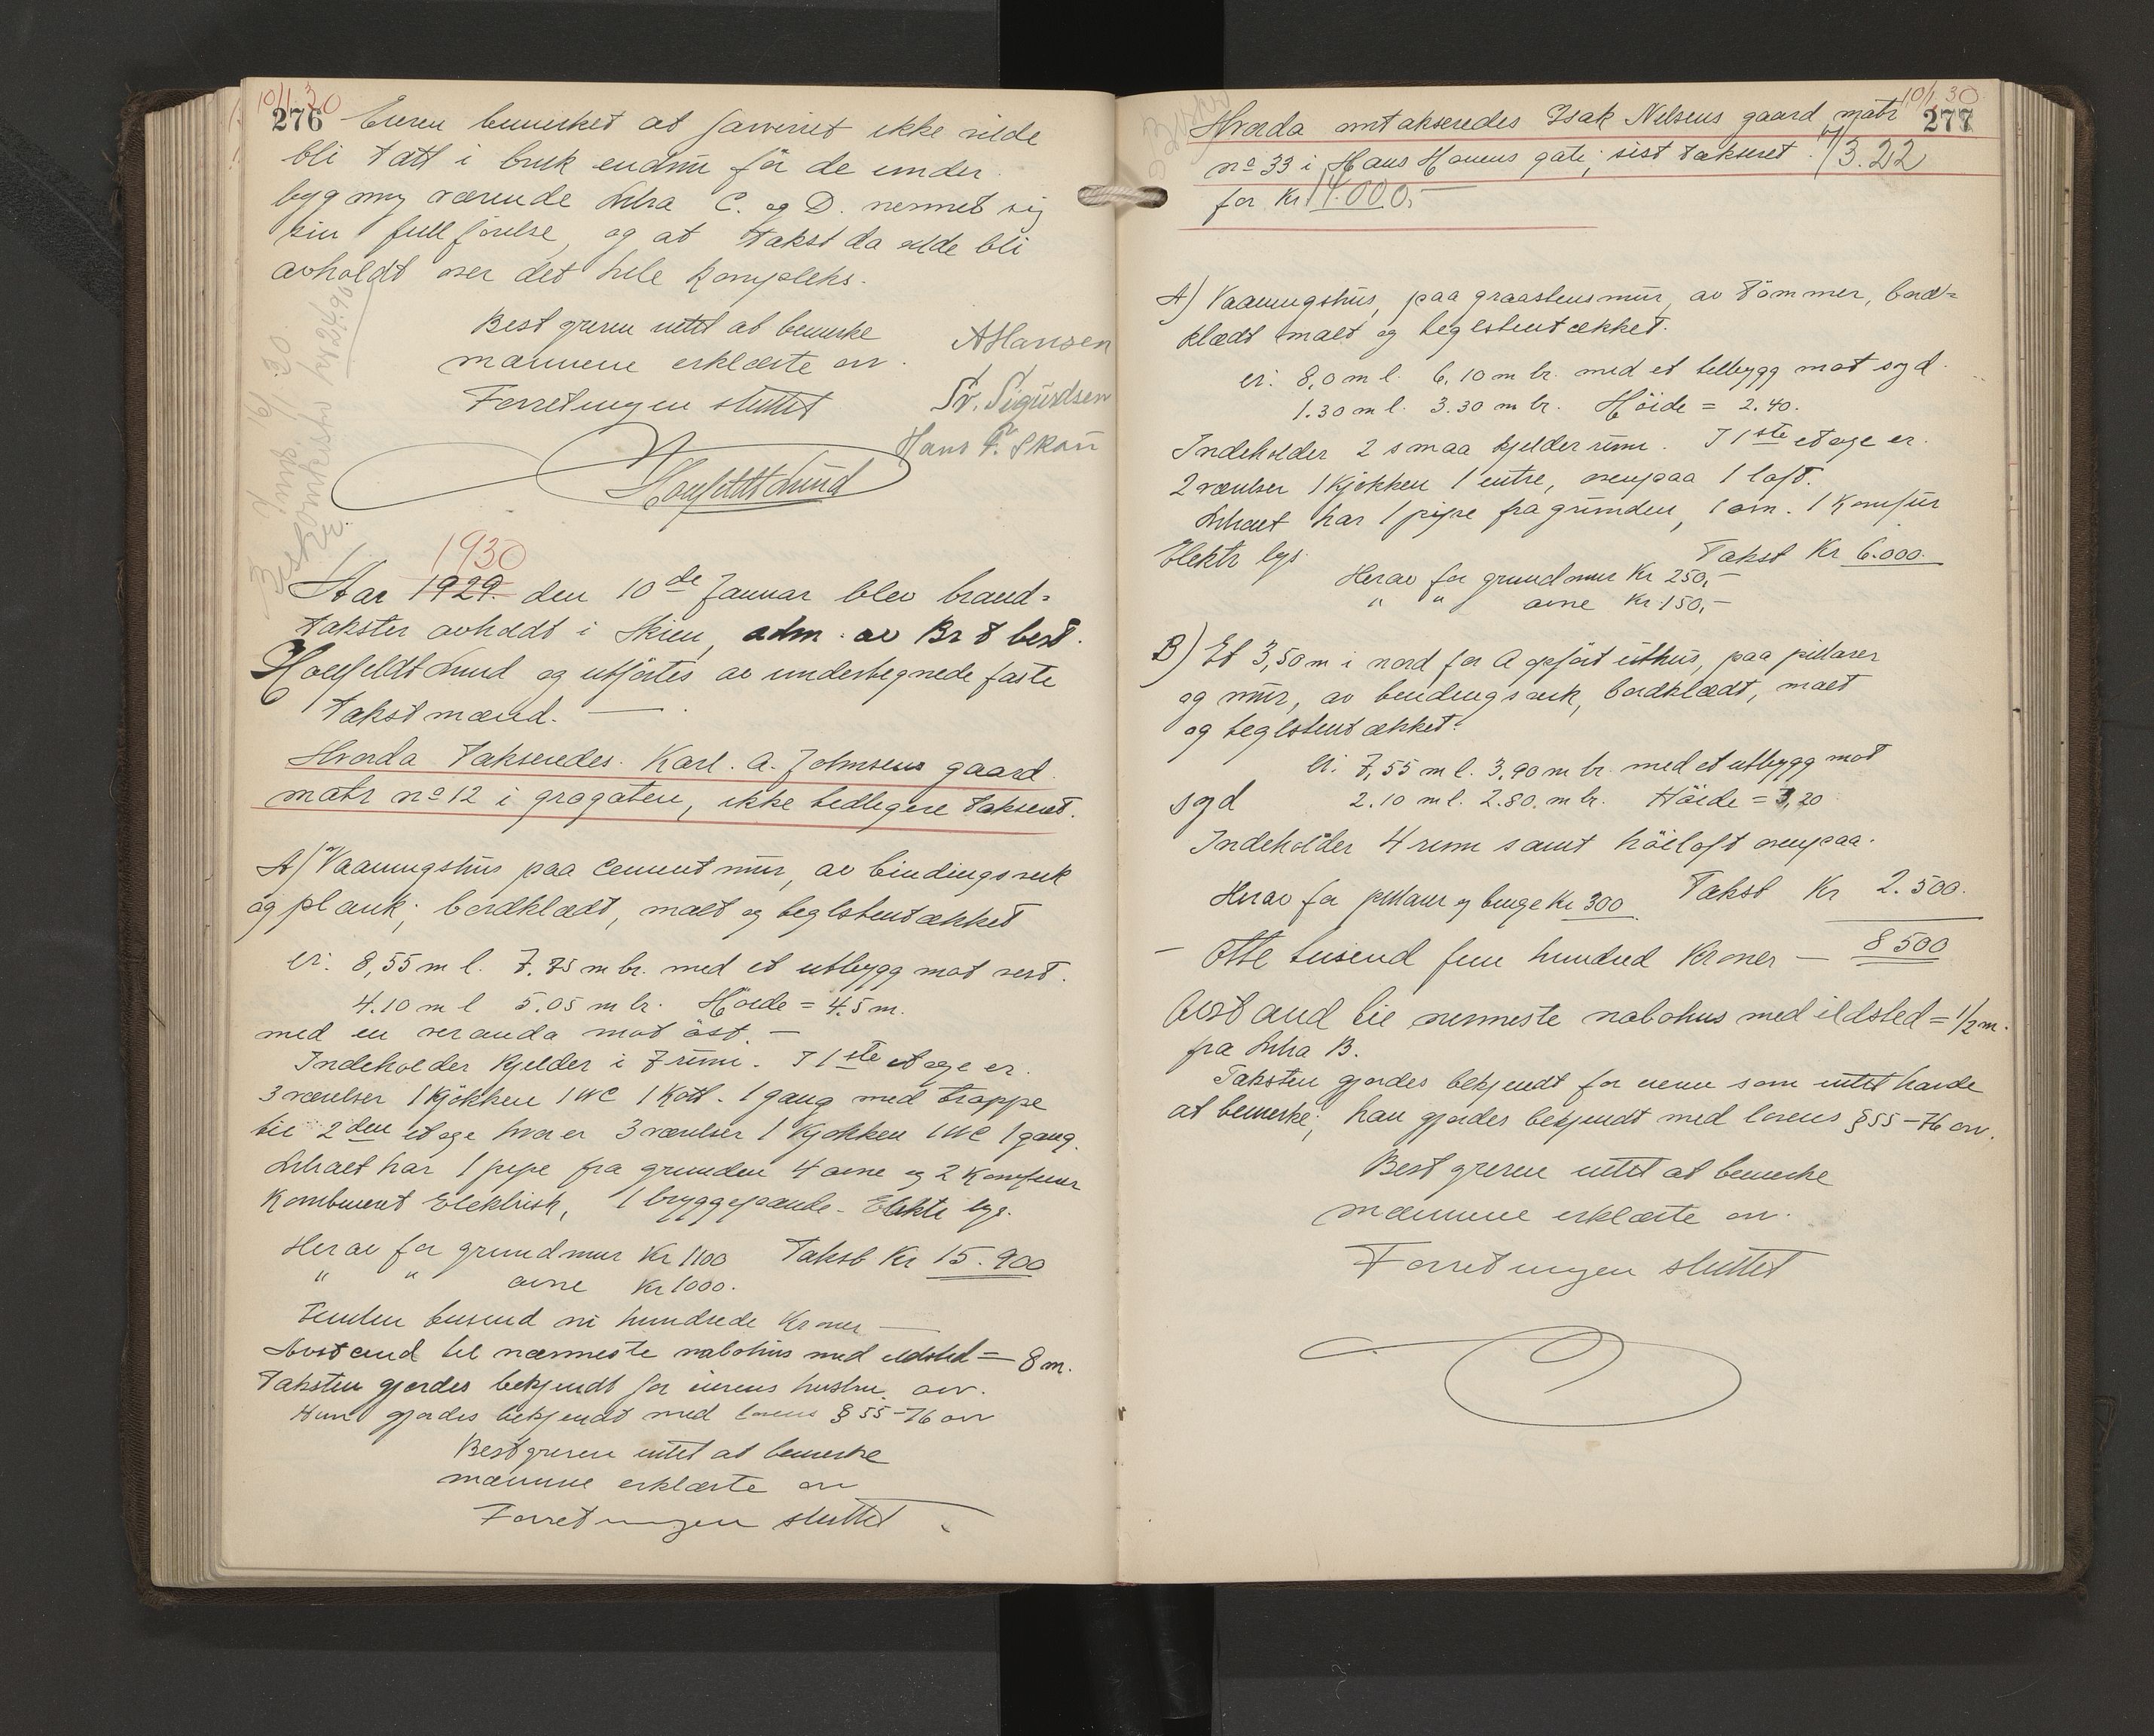 10/1 30
276
Eieren bemerket at garveriet ikke vilde
bli tatt i bruk endnu før de under
bygning værende Litra C. og D. nermet sig
sin fullførelse, og at takst da vilde bli
avholdt over det hele kompleks.
Bestyreren intet at bemerke
mannene erklærte ov.
Forretningen sluttet
A Hansen
Sv. Sigurdsen
Hans F. Skau
Houfeldt Lund
1930
Aar 1929. den 10de Januar blev brand-
takster avholdt i Skien, adm. av Br t best.
Houfeldt Lund og utførtes av undertegnede faste
takstmænd.
Hvorda takseredes Karl. A. Johnsens gaard
matr no 12 i grogaten, ikke tedligere takseret.
A) Vaaningshus paa cement mur, av bindingsverk
og plank; bordklædt, malt og teglstentækket
er: 8,55 m l. 7.75 m br. med et utbygg mot vest.
4.10 m l 5.05 m br. Høide = 4.5 m.
med en veranda mot øst. —
Indeholder kjelder i 7 rum. I 1ste etage er.
3 værelser 1 kjøkken 1 WC 1 kott. 1 gang med trappe
til 2den etage hvor er 3 værelser 1 kjøkken 1 WC 1 gang.
Litraet har 1 pipe fra grunden 4 ovne og 2 komfurer
kombinert Elektrisk, 1 bryggepande - Elektr lys.
Herav for grundmur Kr 1100 Takst Kr 15.900
" " ovne Kr 1000.
Femten tusend ni hundrede Kroner —
Avstand til nærmeste nabohus med ildsted = 8 m.
Taksten gjordes bekjendt for eierens hustru ov.
Hun gjordes bekjendt med lovens § 55-76 ov
Bestyreren intet at bemerke
mannene erklærte ov
Forretningen sluttet
10/1 30
277
Hvorda omtakseredes Isak Nelsens gaard matr
no 33 i Hans Houens gate; sist takseret 17/3.22
for Kr 14.000,—
A) Vaaningshus, paa graastensmur, av tømmer, bord-
klædt malt og teglstentækket.
er: 8,0 m l. 6,10 m br. med et tilbygg mot syd.
1.30 m l. 3.30 m br. Høide = 2.40.
Indeholder 2 smaa kjelder rum. I 1ste etage er.
2 værelser 1 kjøkken 1 entre, ovenpaa 1 loft.
Litraet har 1 pipe fra grunden, 1 ovn. 1 Komfur
Elektr lys. Takst Kr 6.000.
Herav for grundmur Kr 250,—
" " ovne Kr 150,—
B) Et 3,50 m i nord for A opført uthus, paa pillarer
og mur, av bindingsverk, bordklædt, malt
og teglstentækket.
er: 7,55 m l. 3,90 m br. med et utbygg mot
syd 2.10 m l. 2.80. m br. Høide = 3,20
Indeholder 4 rum samt høiloft ovenpaa.
Herav for pillarer og binge Kr 300. Takst Kr 2.500.
— Otte tusend fem hundred Kroner — 8 500
Avstand til nermeste nabohus med ildsted = 1/2 m.
fra Litra B.
Taksten gjordes bekjendt for eieren som intet havde
at bemerke; han gjordes bekjendt med lovens § 55-76 ov.
Bestyreren intet at bemerke
mannene erklærte ov.
Forretningen sluttet